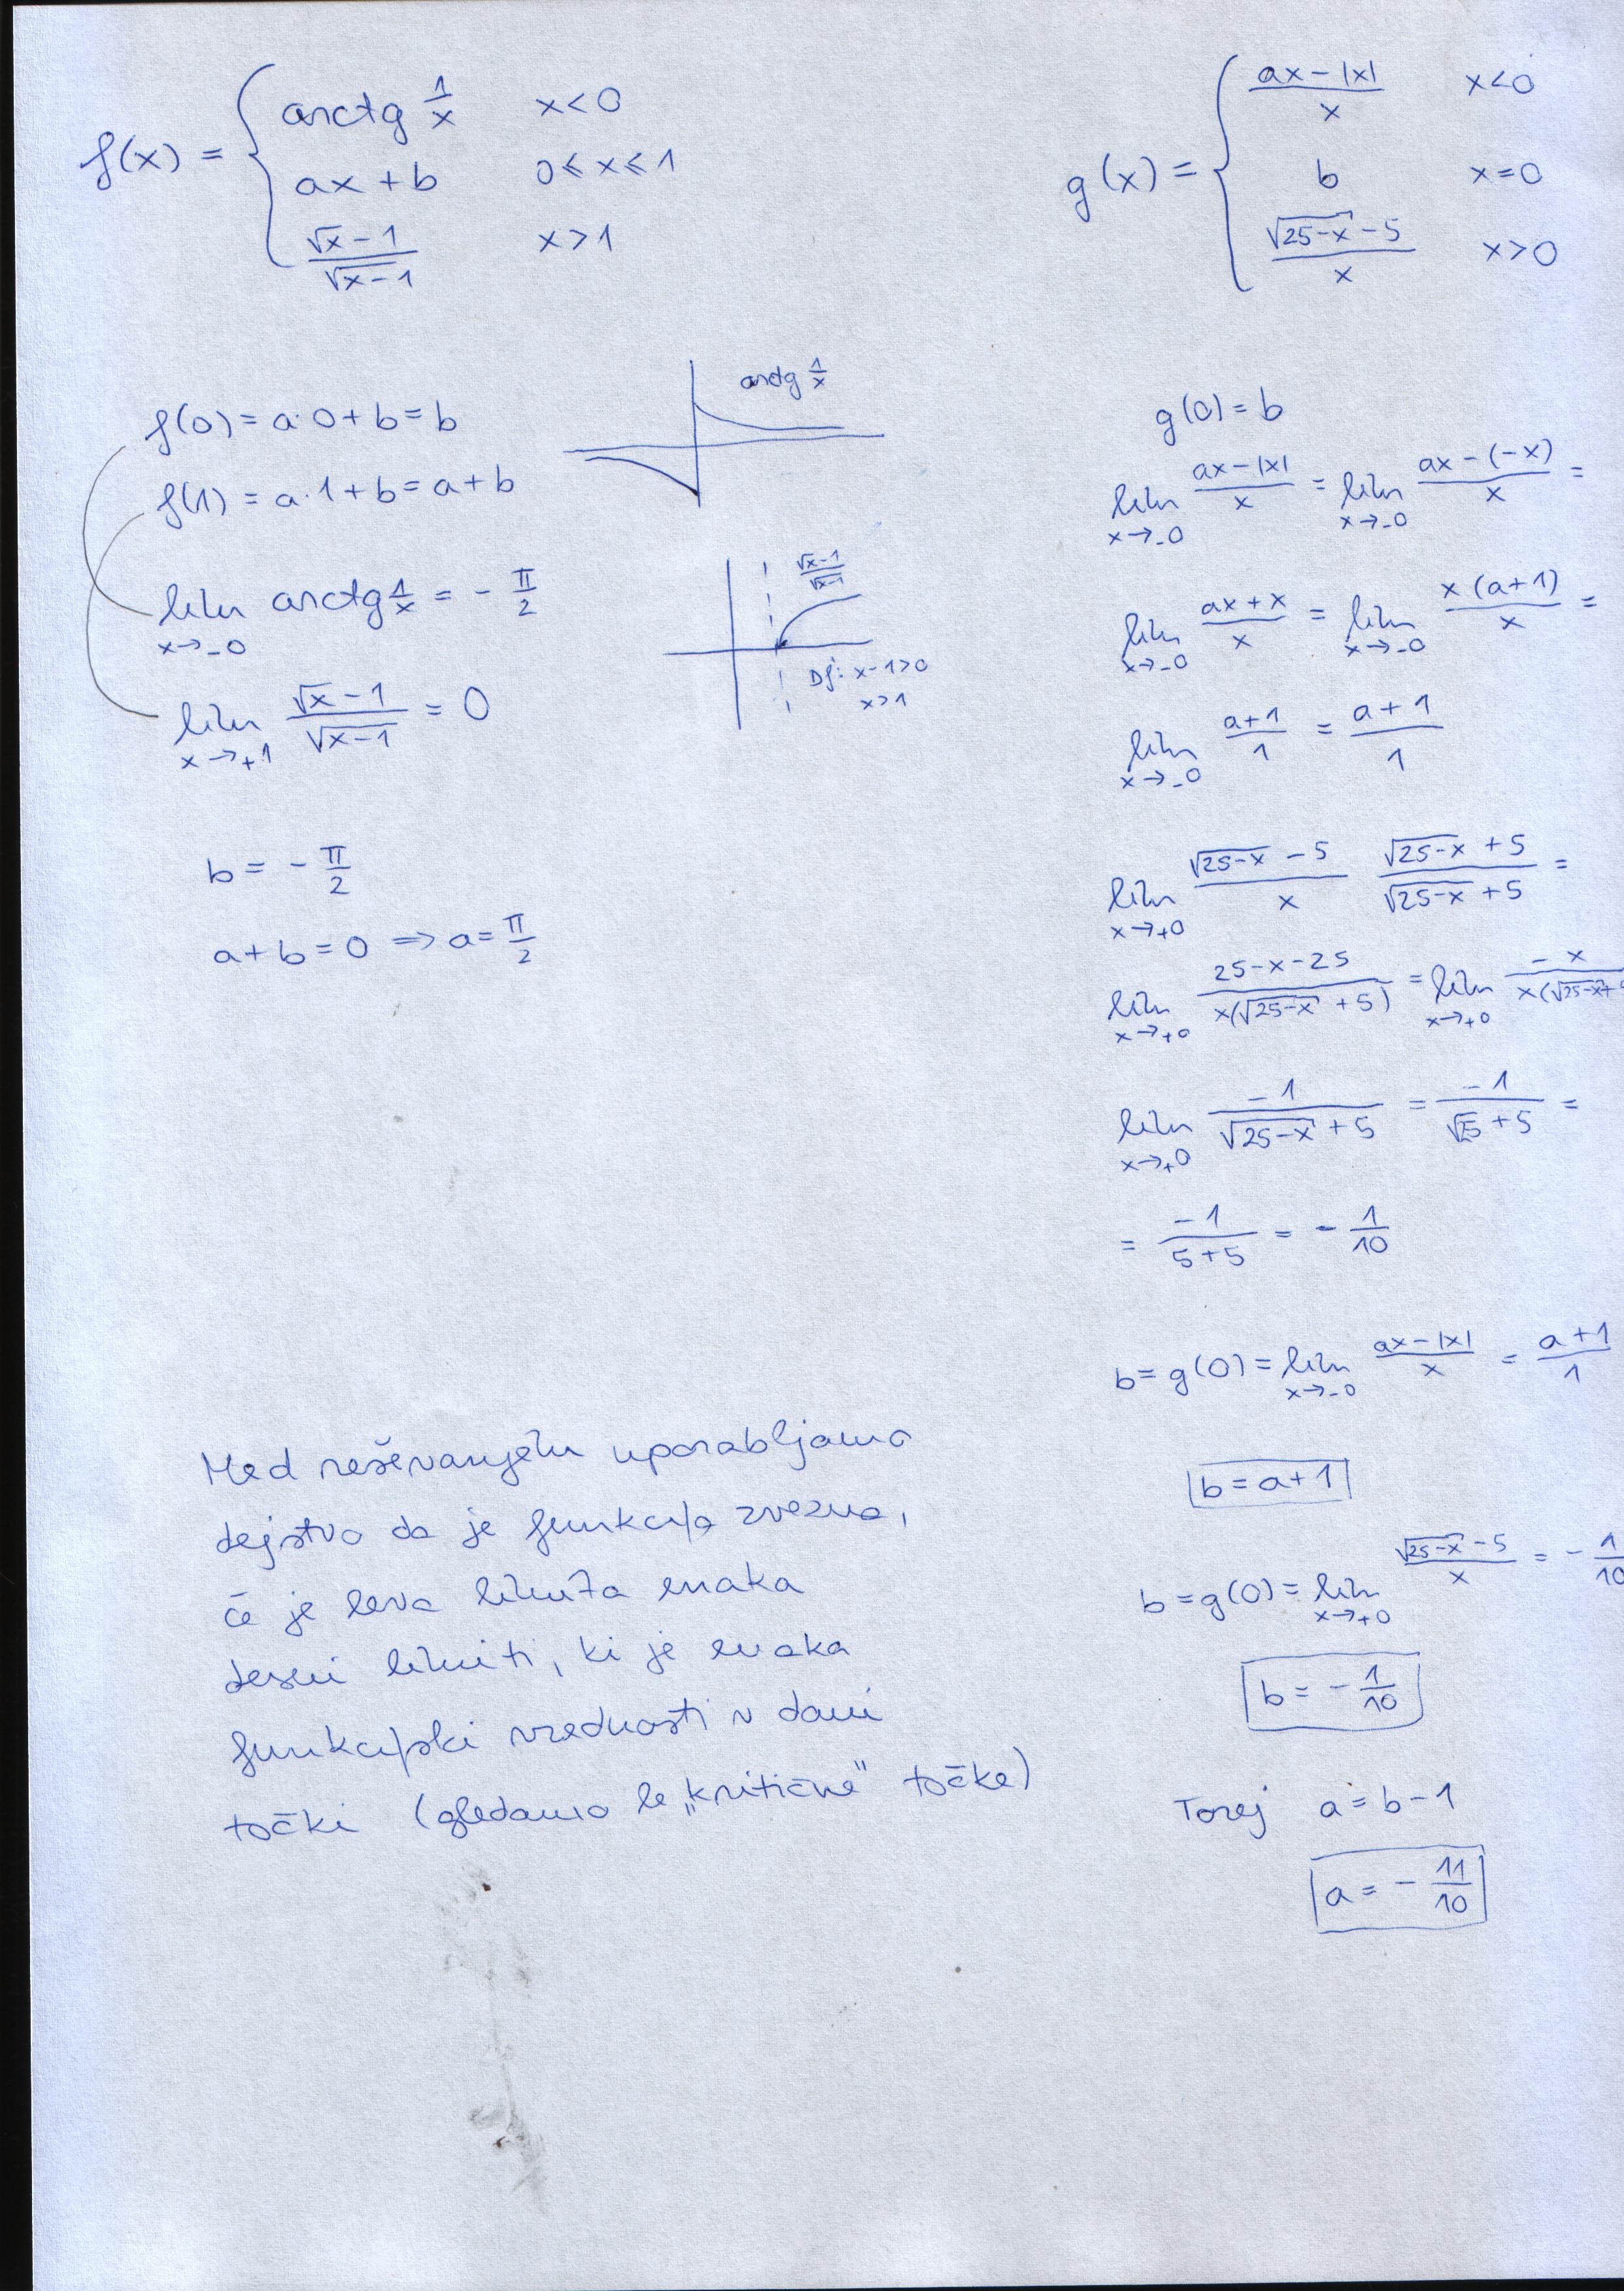 f(x) = { arctg 1/x x < 0
ax + b 0 ≤ x ≤ 1
(√x - 1)/(√(x-1)) x > 1
f(0) = a·0 + b = b
f(1) = a·1 + b = a + b
lim x→-0 arctg 1/x = - π/2
lim x→+1 (√x - 1)/(√(x-1)) = 0
b = - π/2
a + b = 0 ⇒ a = π/2
arctg 1/x
(√x-1)/(√(x-1))
Df: x-1>0
x>1
Med reševanjem uporabljamo
dejstvo da je funkcija zvezna,
če je leva limita enaka
desni limiti, ki je enaka
funkcijski vrednosti v dani
točki (gledamo le „kritične" točke)
g(x) = { (ax - |x|)/x x<0
b x=0
(√(25-x) - 5)/x x>0
g(0) = b
lim x→-0 (ax-|x|)/x = lim x→-0 (ax-(-x))/x =
lim x→-0 (ax+x)/x = lim x→-0 (x(a+1))/x =
lim x→-0 (a+1)/1 = (a+1)/1
lim x→+0 (√(25-x) - 5)/x (√(25-x) + 5)/(√(25-x) + 5) =
lim x→+0 (25-x-25)/(x(√(25-x) + 5)) = lim x→+0 (-x)/(x(√(25-x)+
lim x→+0 (-1)/(√(25-x) + 5) = (-1)/(√25 + 5) =
= (-1)/(5+5) = - 1/10
b = g(0) = lim x→-0 (ax-|x|)/x = (a+1)/1
b = a+1
b = g(0) = lim x→+0 (√(25-x) - 5)/x = - 1/10
b = - 1/10
Torej a = b - 1
a = - 11/10